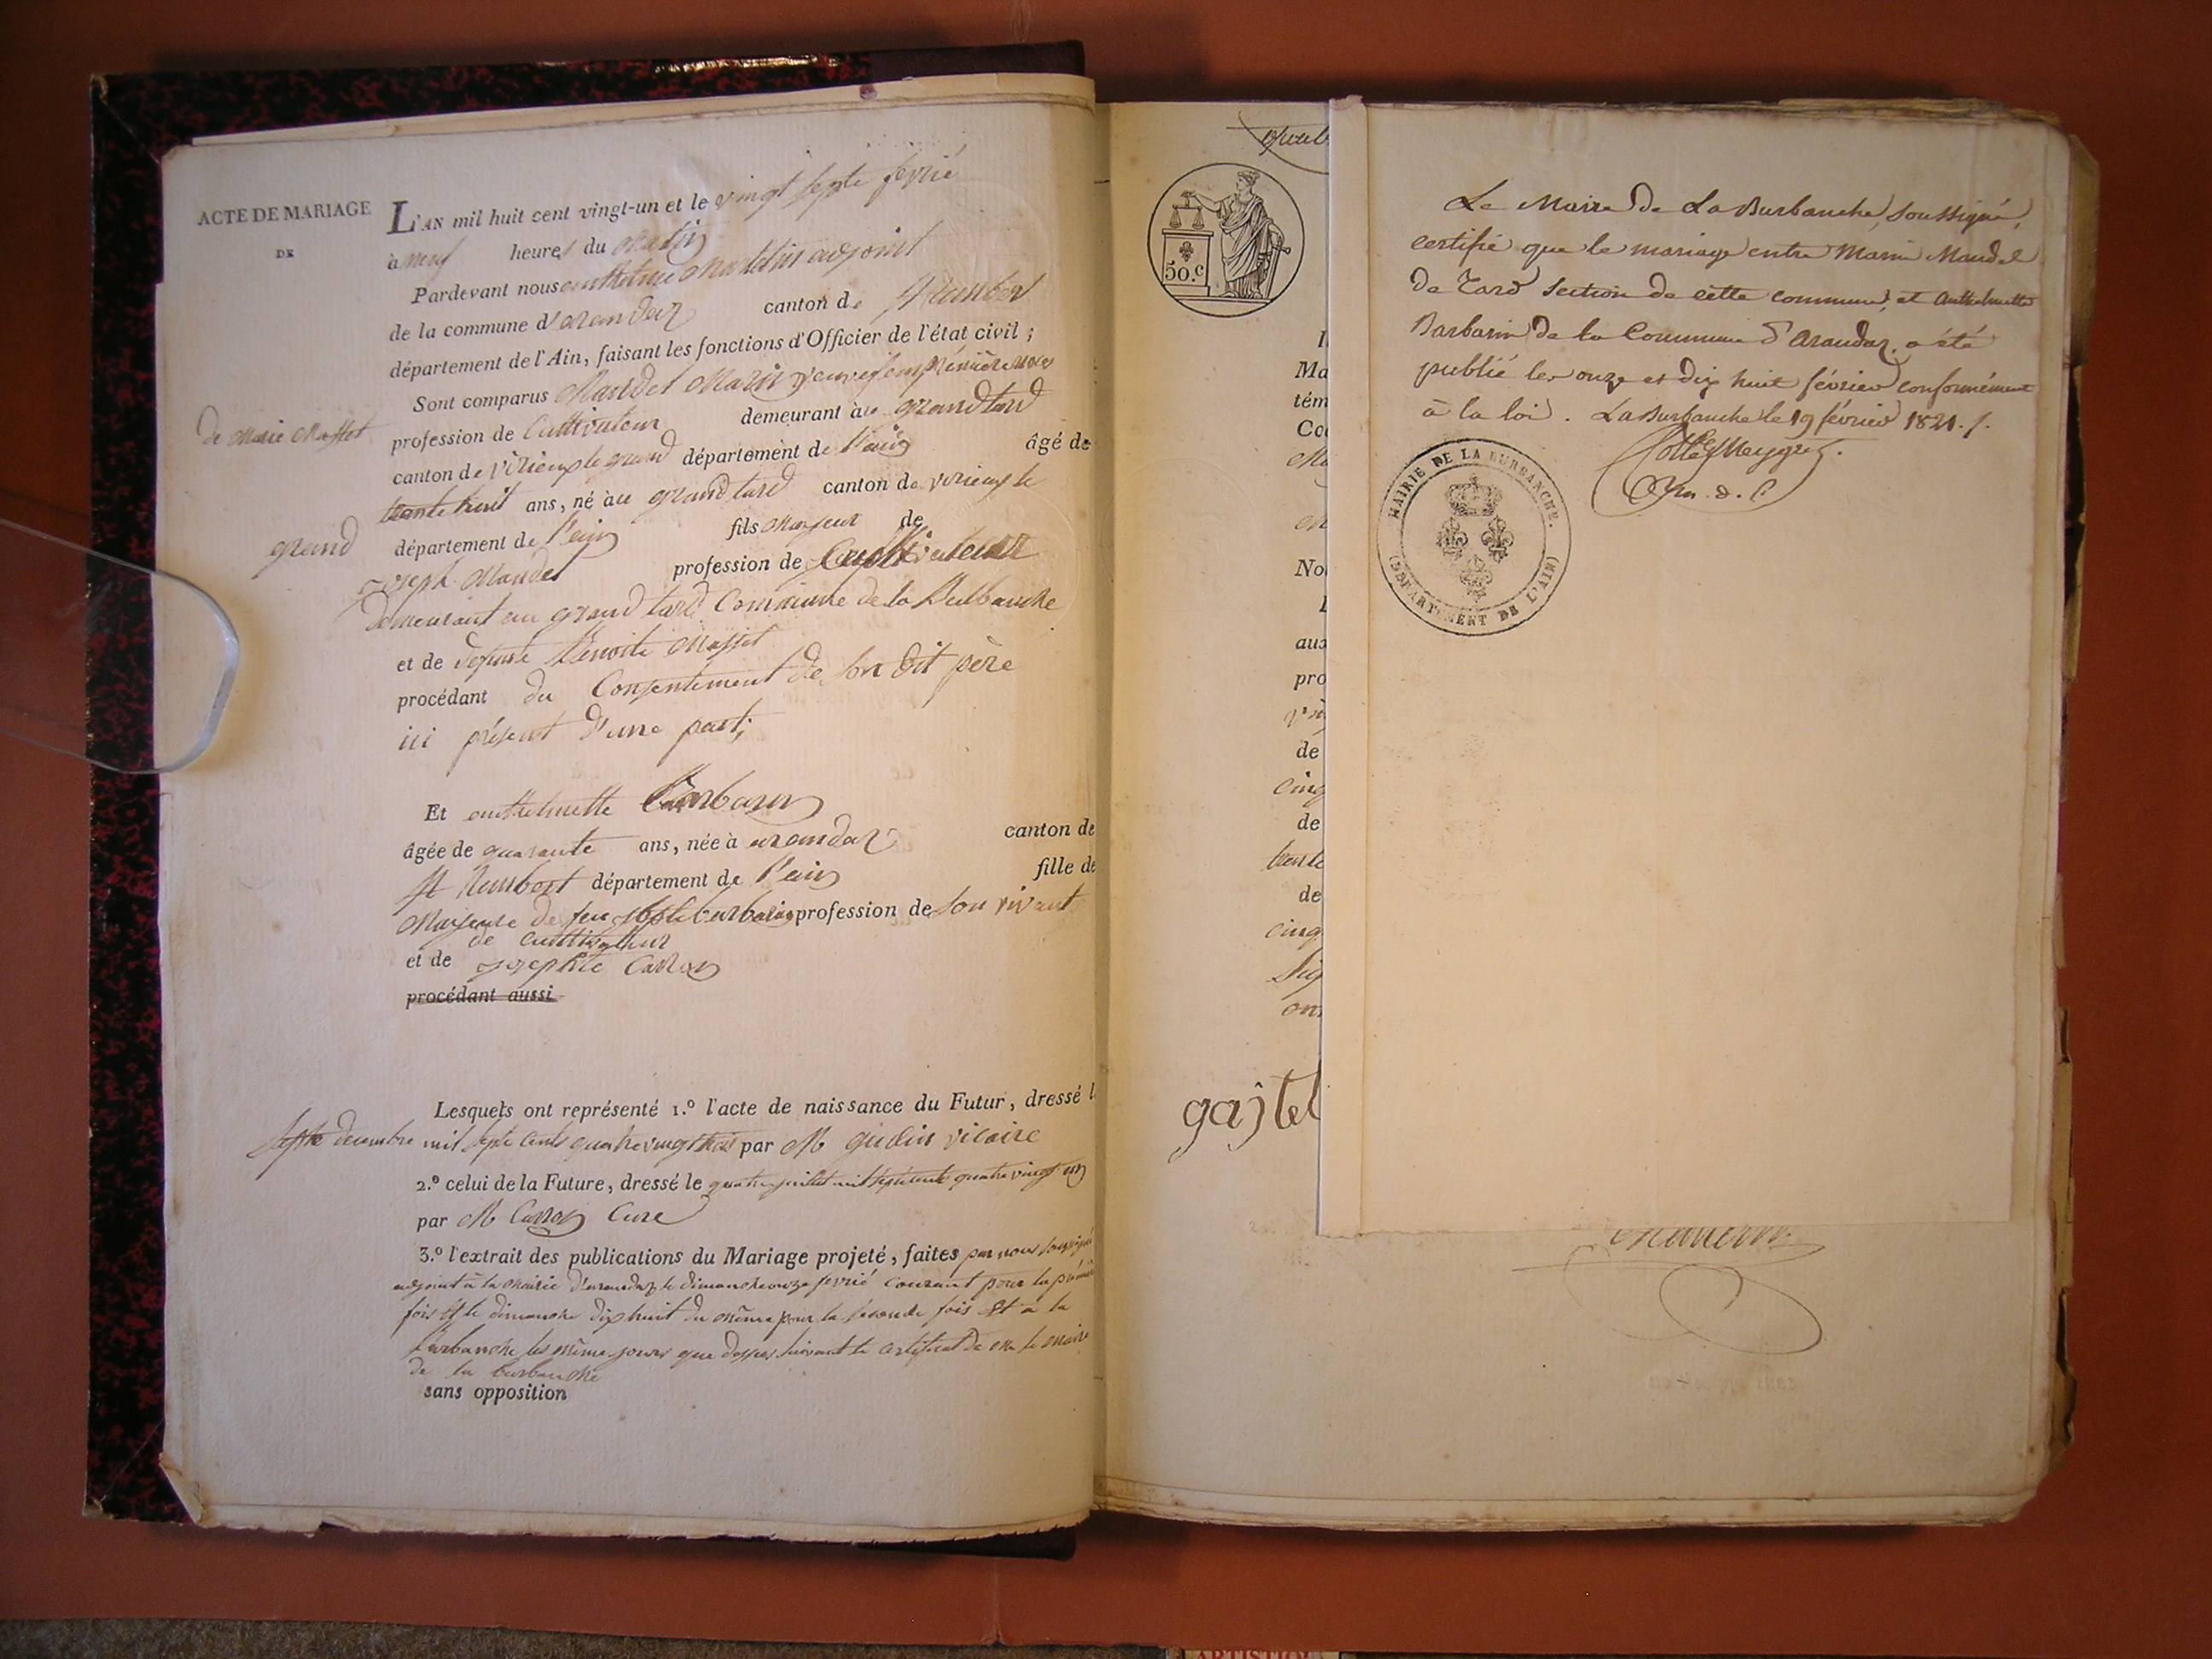 ACTE DE MARIAGE
DE
L'AN mil huit cent vingt-un et le vingt septe fevrié
à neuf heures du matin
Pardevant nous anthelme adjoint
de la commune d'arandaz canton de St Rambert
département de l'Ain, faisant les fonctions d'Officier de l'état civil ;
Sont comparus Mandet Marin veuve en première noces
de Marie Massset
profession de Cultivateur demeurant au grand tard
canton de virieux le grand département de l'ain âgé de
trente huit ans, né au grand tard canton de virieux le
grand
département de l'ain fils Majeur de
Joseph Mandet profession de Cultivateur
demeurant au grand tard Commune de la Burbanche
et de defunte Benoite Masset
procédant du Consentement de son dit père
ici présent d'une part;
Et anthelmette Barbarin
âgée de quarante ans, née à arandaz canton de
St Rambert département de l'ain fille de
Majeure de feu barbarin profession de son vivant
de cultivateur
et de Josephte Carron
procédant aussi
Lesquels ont représenté 1.º l'acte de naissance du Futur, dressé l
septe decembre mil septe cents quatre vingt trois par M gudin vicaire
2.º celui de la Future, dressé le quatre juillet mil septcents quatre vingt un
par M Carron Cure
3.º l'extrait des publications du Mariage projeté, faites par nous soussigné
adjoint à la Mairie d'arandaz le dimanche onze fevrié courant pour la première
fois et le dimanche dix huit du même pour la seconde fois et à la
burbanche les même jours que dessus suivant le certificat de Mr le Maire
de la burbanche
sans opposition
50.c
Ma
tém
No
aus
pro
de
cinq
de
trente
de
cinq
Sig
gastel
Le Maire de La Burbanche, soussigné,
certifie que le mariage entre Marin Mandet
de Tard section de cette commune, et Anthelmette
Barbarin de la Commune d'Arandaz, a été
publié les onze et dix huit février conformément
à la loi. La Burbanche le 19 février 1821./.
MAIRIE DE LA BURBANCHE.
(DÉPARTEMENT DE L'AIN)